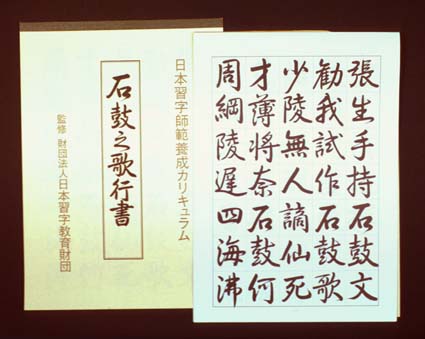 日本習字師範養成カリキュラム
石鼓之歌行書
監修 財団法人日本習字教育財団
張生手持石鼓文
勸我試作石鼓歌
少陵無人謫仙死
才薄將奈石鼓何
周綱陵遲四海沸